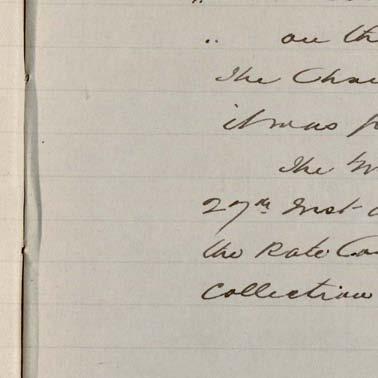 " on th
The Chai
it was p
The
27th Inst
the Rate Co
Collection